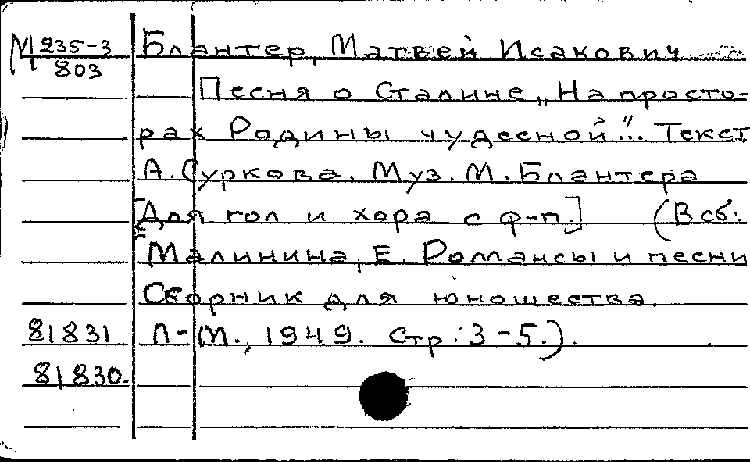 М 235-3 Блантер, Матвей Исакович
803
Песня о Сталине „На просто-
рах Родины чудесной"... Текст
А. Суркова. Муз. М. Блантера
[Для гол и хора с ф-п.] (В сб:
Малинина, Е. Романсы и песни
Сборник для юношества.
81831 Л-М., 1949. Стр: 3-5.).
81830.